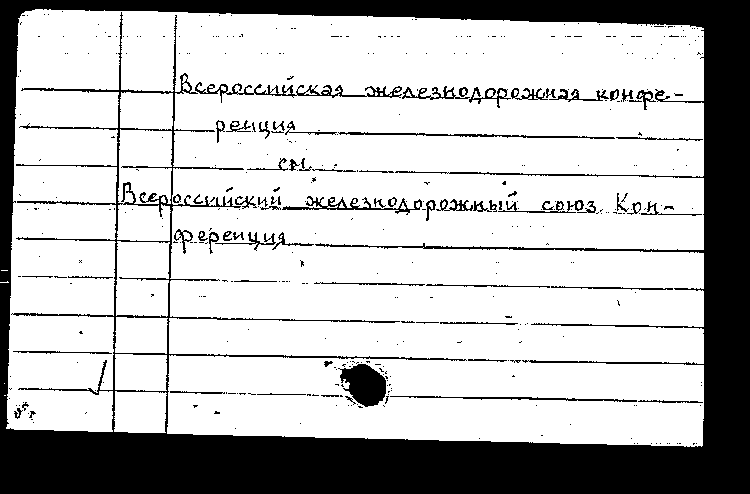 Всероссийская железнодорожная конфе-
ренция
см.
Всероссийский железнодорожный союз. Кон-
ференция